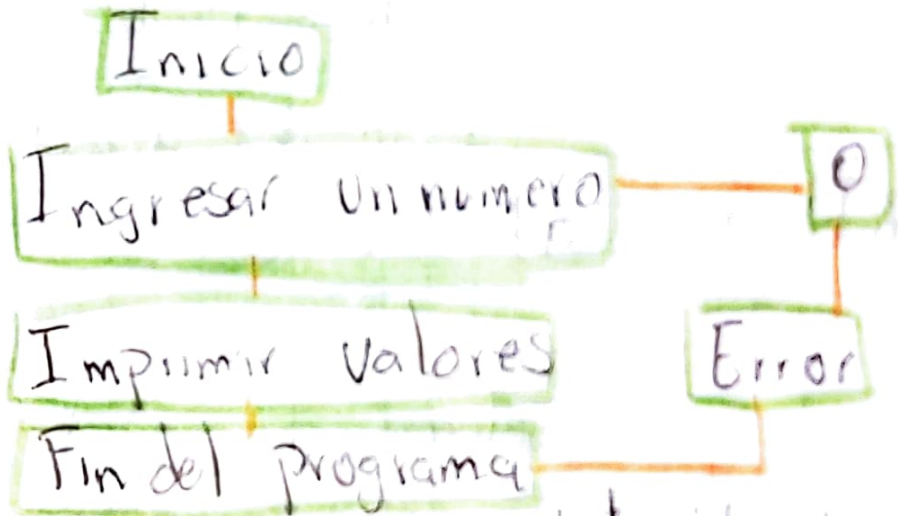 Inicio
Ingresar un numero
0
Imprimir valores
Error
Fin del programa